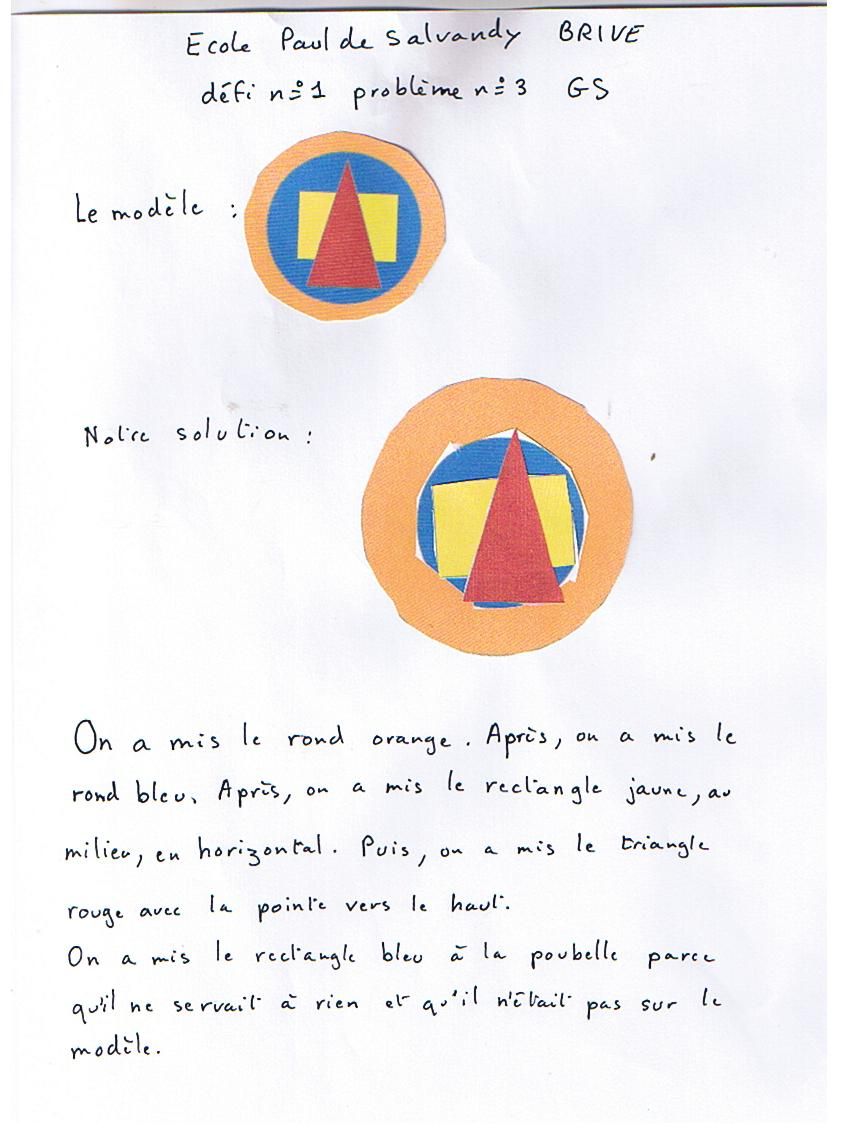 Ecole Paul de Salvandy BRIVE
défi n°1 problème n°3 GS
Le modèle :
Notre solution :
On a mis le rond orange. Après, on a mis le
rond bleu. Après, on a mis le rectangle jaune, au
milieu, en horizontal. Puis, on a mis le triangle
rouge avec la pointe vers le haut.
On a mis le rectangle bleu à la poubelle parce
qu'il ne servait à rien et qu'il n'était pas sur le
modèle.